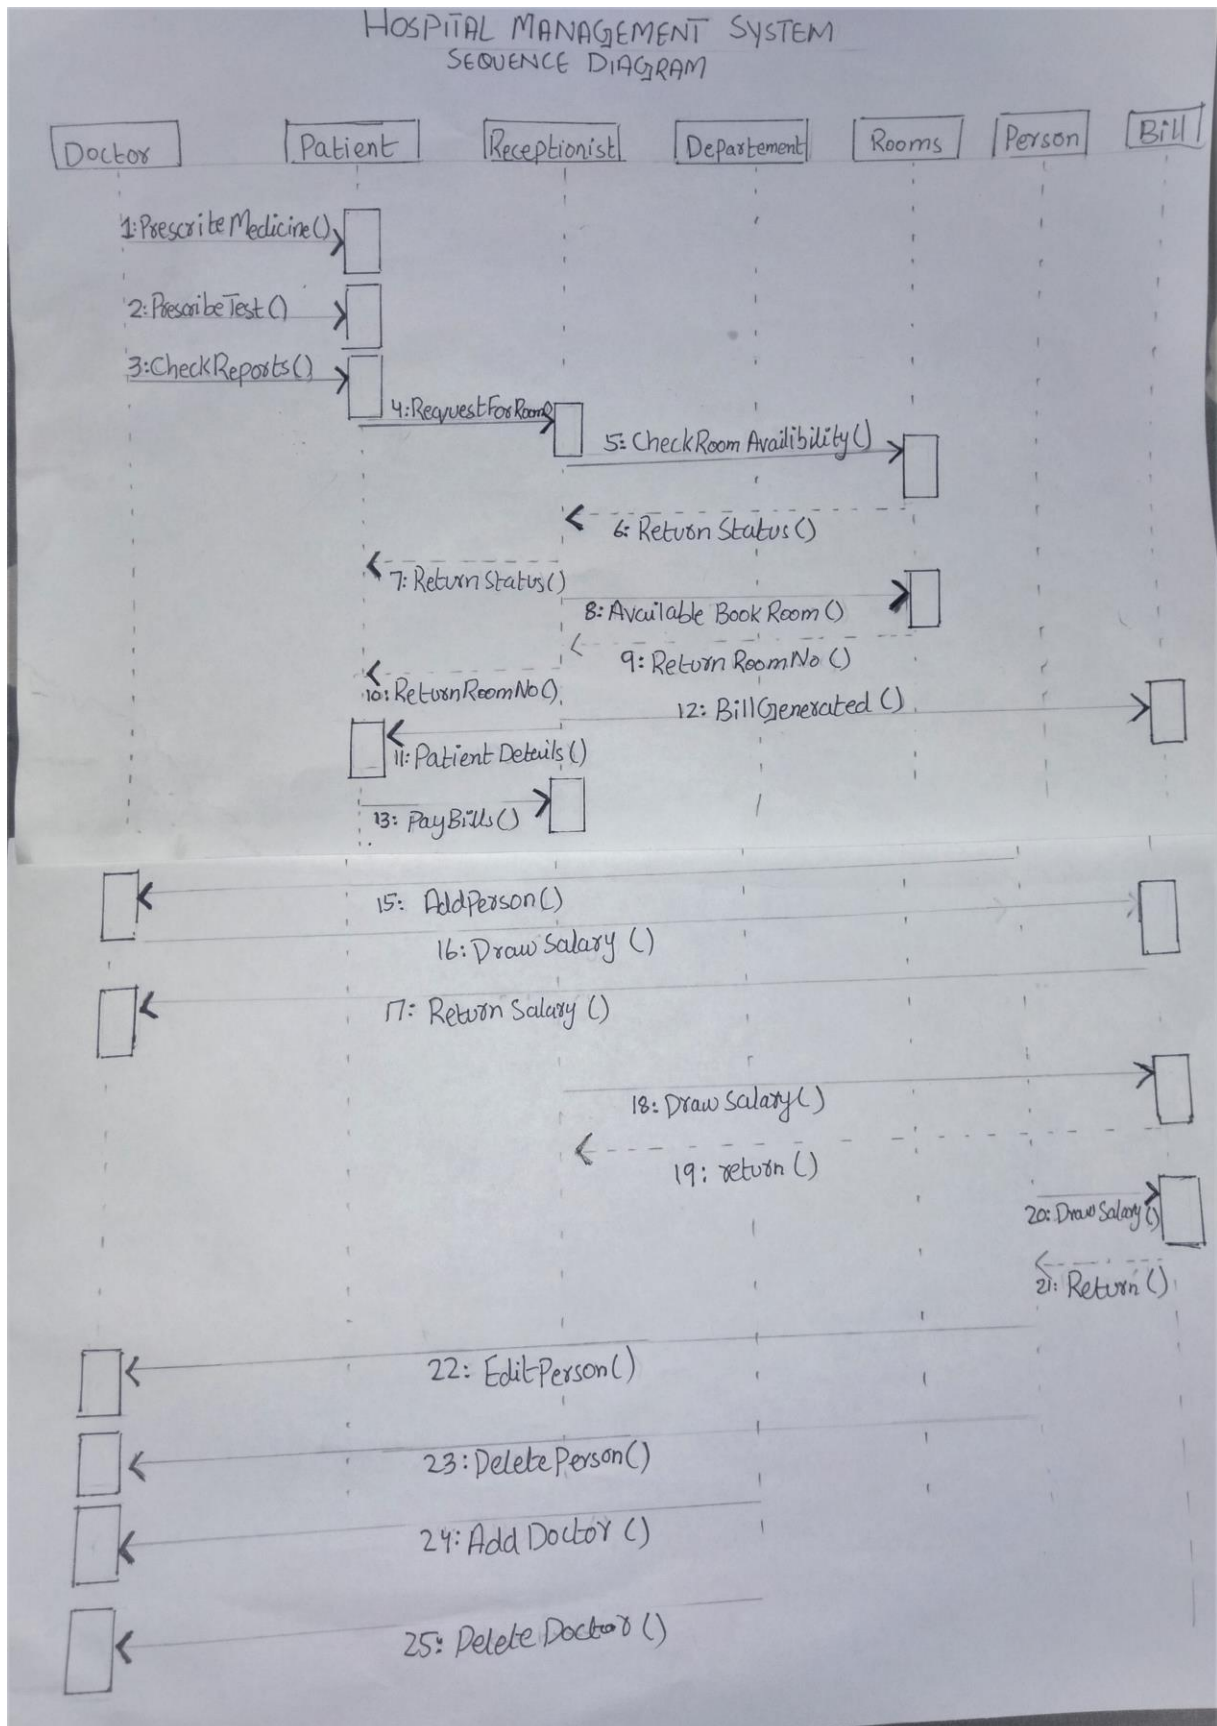 HOSPITAL MANAGEMENT SYSTEM
SEQUENCE DIAGRAM
Doctor
Patient
Receptionist
Departement
Rooms
Person
Bill
1:PrescriteMedicine()
2:PrescribeTest()
3:CheckReports()
4:RequestForRoom()
5:CheckRoomAvailibility()
6:ReturnStatus()
7:ReturnStatus()
8:Available BookRoom()
9:ReturnRoomNo()
10:ReturnRoomNo()
12:BillGenerated()
11:PatientDetails()
13:PayBills()
15: AddPerson()
16:DrawSalary()
17: ReturnSalary()
18:DrawSalary()
19: return()
20:DrawSalary()
21: Return()
22: EditPerson()
23:DeletePerson()
24:AddDoctor()
25:DeleteDoctor()